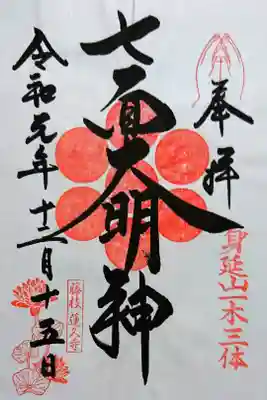 奉拝
身延山一木三体
七面大明神
令和元年十二月十五日
藤枝 蓮久寺